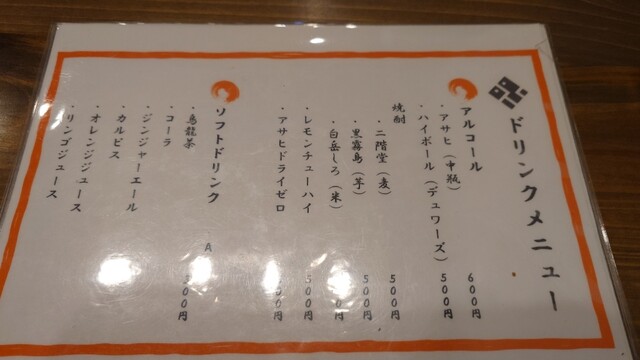 ドリンクメニュー
アルコール
・アサヒ（中瓶） 600円
・ハイボール（デュワーズ） 500円
焼酎
・二階堂（麦） 500円
・黒霧島（芋） 500円
・白岳しろ（米） 円
・レモンチューハイ 500円
・アサヒドライゼロ 00円
ソフトドリンク A 300円
・烏龍茶
・コーラ
・ジンジャーエール
・カルピス
・オレンジジュース
・リンゴジュース